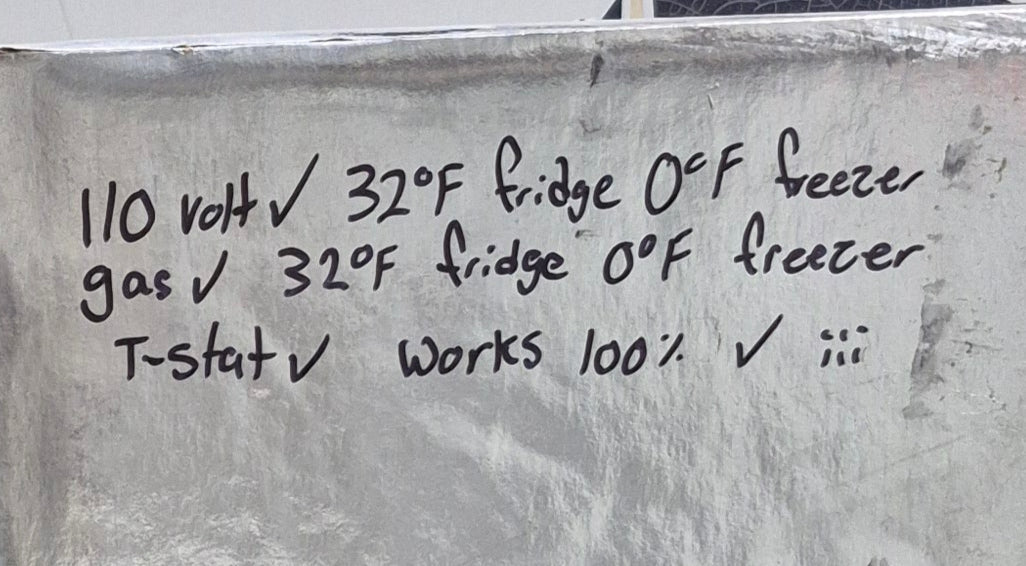 110 volt ✓ 32°F fridge 0°F freezer
gas ✓ 32°F fridge 0°F freezer
T-stat ✓ works 100% ✓ iii